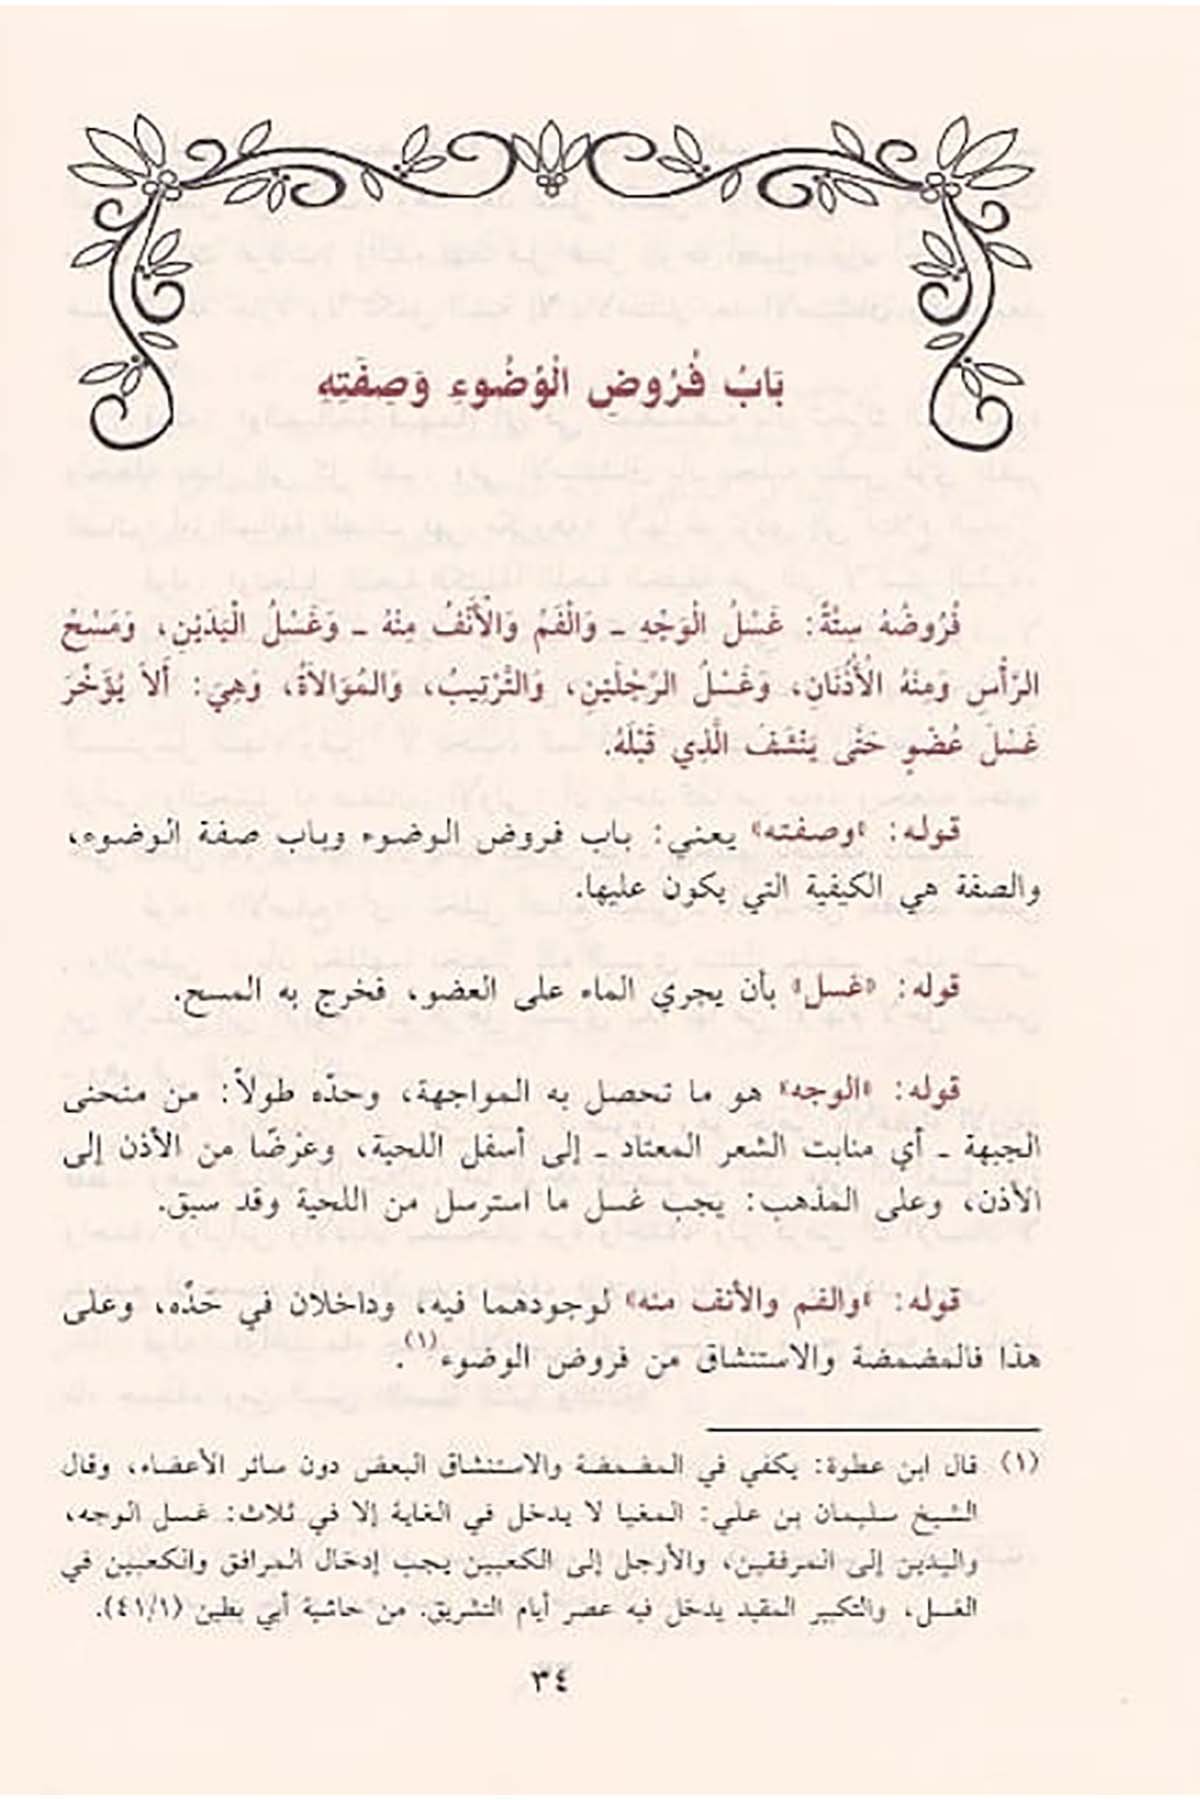 بَابُ فُرُوضِ الْوُضُوءِ وَصِفَتِهِ
فُرُوضُهُ سِتَّةٌ: غَسْلُ الْوَجْهِ ـ وَالْفَمُ وَالْأَنْفُ مِنْهُ ـ وَغَسْلُ الْيَدَيْنِ، وَمَسْحُ
الرَّأْسِ وَمِنْهُ الأُذُنَانِ، وَغَسْلُ الرِّجْلَيْنِ، وَالتَّرْتِيبُ، وَالمُوَالاَةُ، وَهِيَ: أَلاَّ يُؤَخِّرَ
غَسْلَ عُضْوٍ حَتَّى يَنْشَفَ الَّذِي قَبْلَهُ.
قوله: «وصفته» يعني: باب فروض الوضوء وباب صفة الوضوء،
والصفة هي الكيفية التي يكون عليها.
قوله: «غسل» بأن يجري الماء على العضو، فخرج به المسح.
قوله: «الوجه» هو ما تحصل به المواجهة، وحدّه طولاً: من منحنى
الجبهة ـ أي منابت الشعر المعتاد ـ إلى أسفل اللحية، وعرضًا من الأذن إلى
الأذن، وعلى المذهب: يجب غسل ما استرسل من اللحية وقد سبق.
قوله: «والفم والأنف منه» لوجودهما فيه، وداخلان في حدّه، وعلى
هذا فالمضمضة والاستنشاق من فروض الوضوء(١).
(١) قال ابن عطوة: يكفي في المضمضة والاستنشاق البعض دون سائر الأعضاء، وقال
الشيخ سليمان بن علي: المغيا لا يدخل في الغاية إلا في ثلاث: غسل الوجه،
واليدين إلى المرفقين، والأرجل إلى الكعبين يجب إدخال المرافق والكعبين في
الغسل، والتكبير المقيد يدخل فيه عصر أيام التشريق. من حاشية أبي بطين (٤١/١).
٣٤